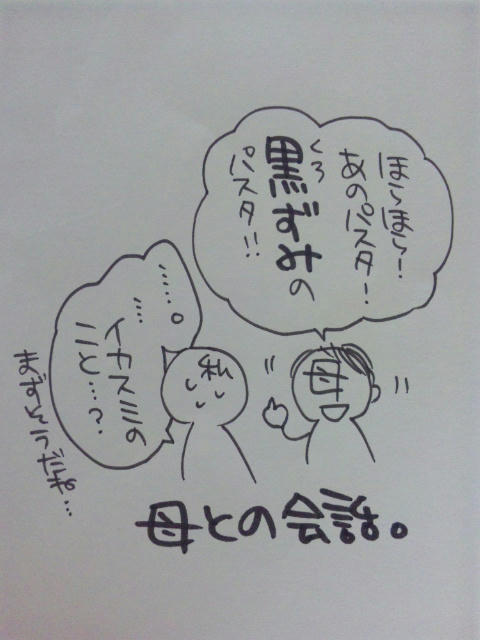 ほらほら!
あのパスタ!
くろ
黒ずみの
パスタ!!
母
私
……。
……
イカスミの
こと…?
まずそうだな…
母との会話。